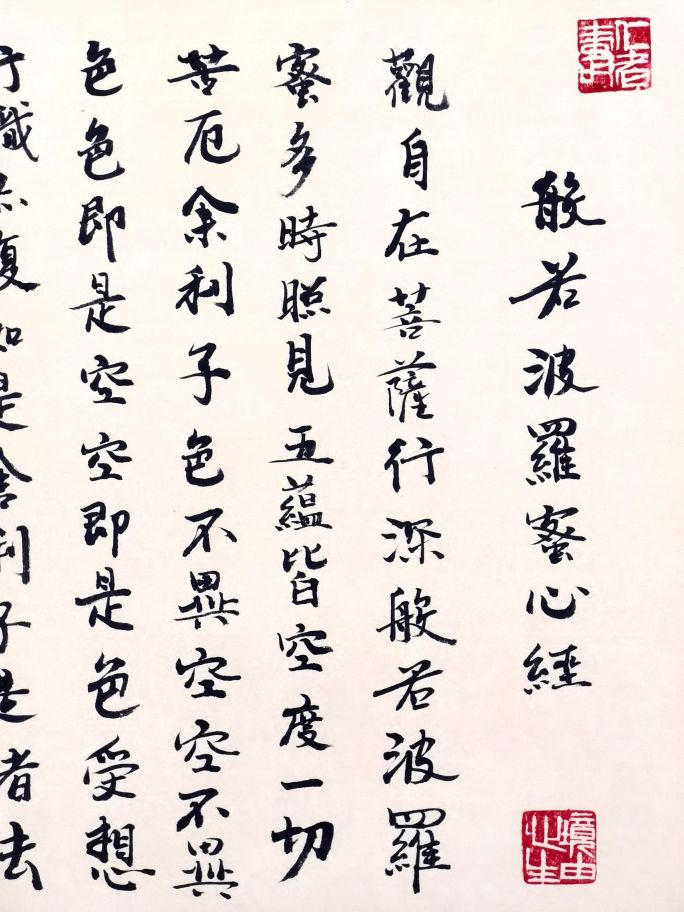 仁者壽
般若波羅蜜心經
境由心生
觀自在菩薩行深般若波羅
蜜多時照見五蘊皆空度一切
苦厄舍利子色不異空空不異
色色即是空空即是色受想
行識亦復如是舍利子是諸法